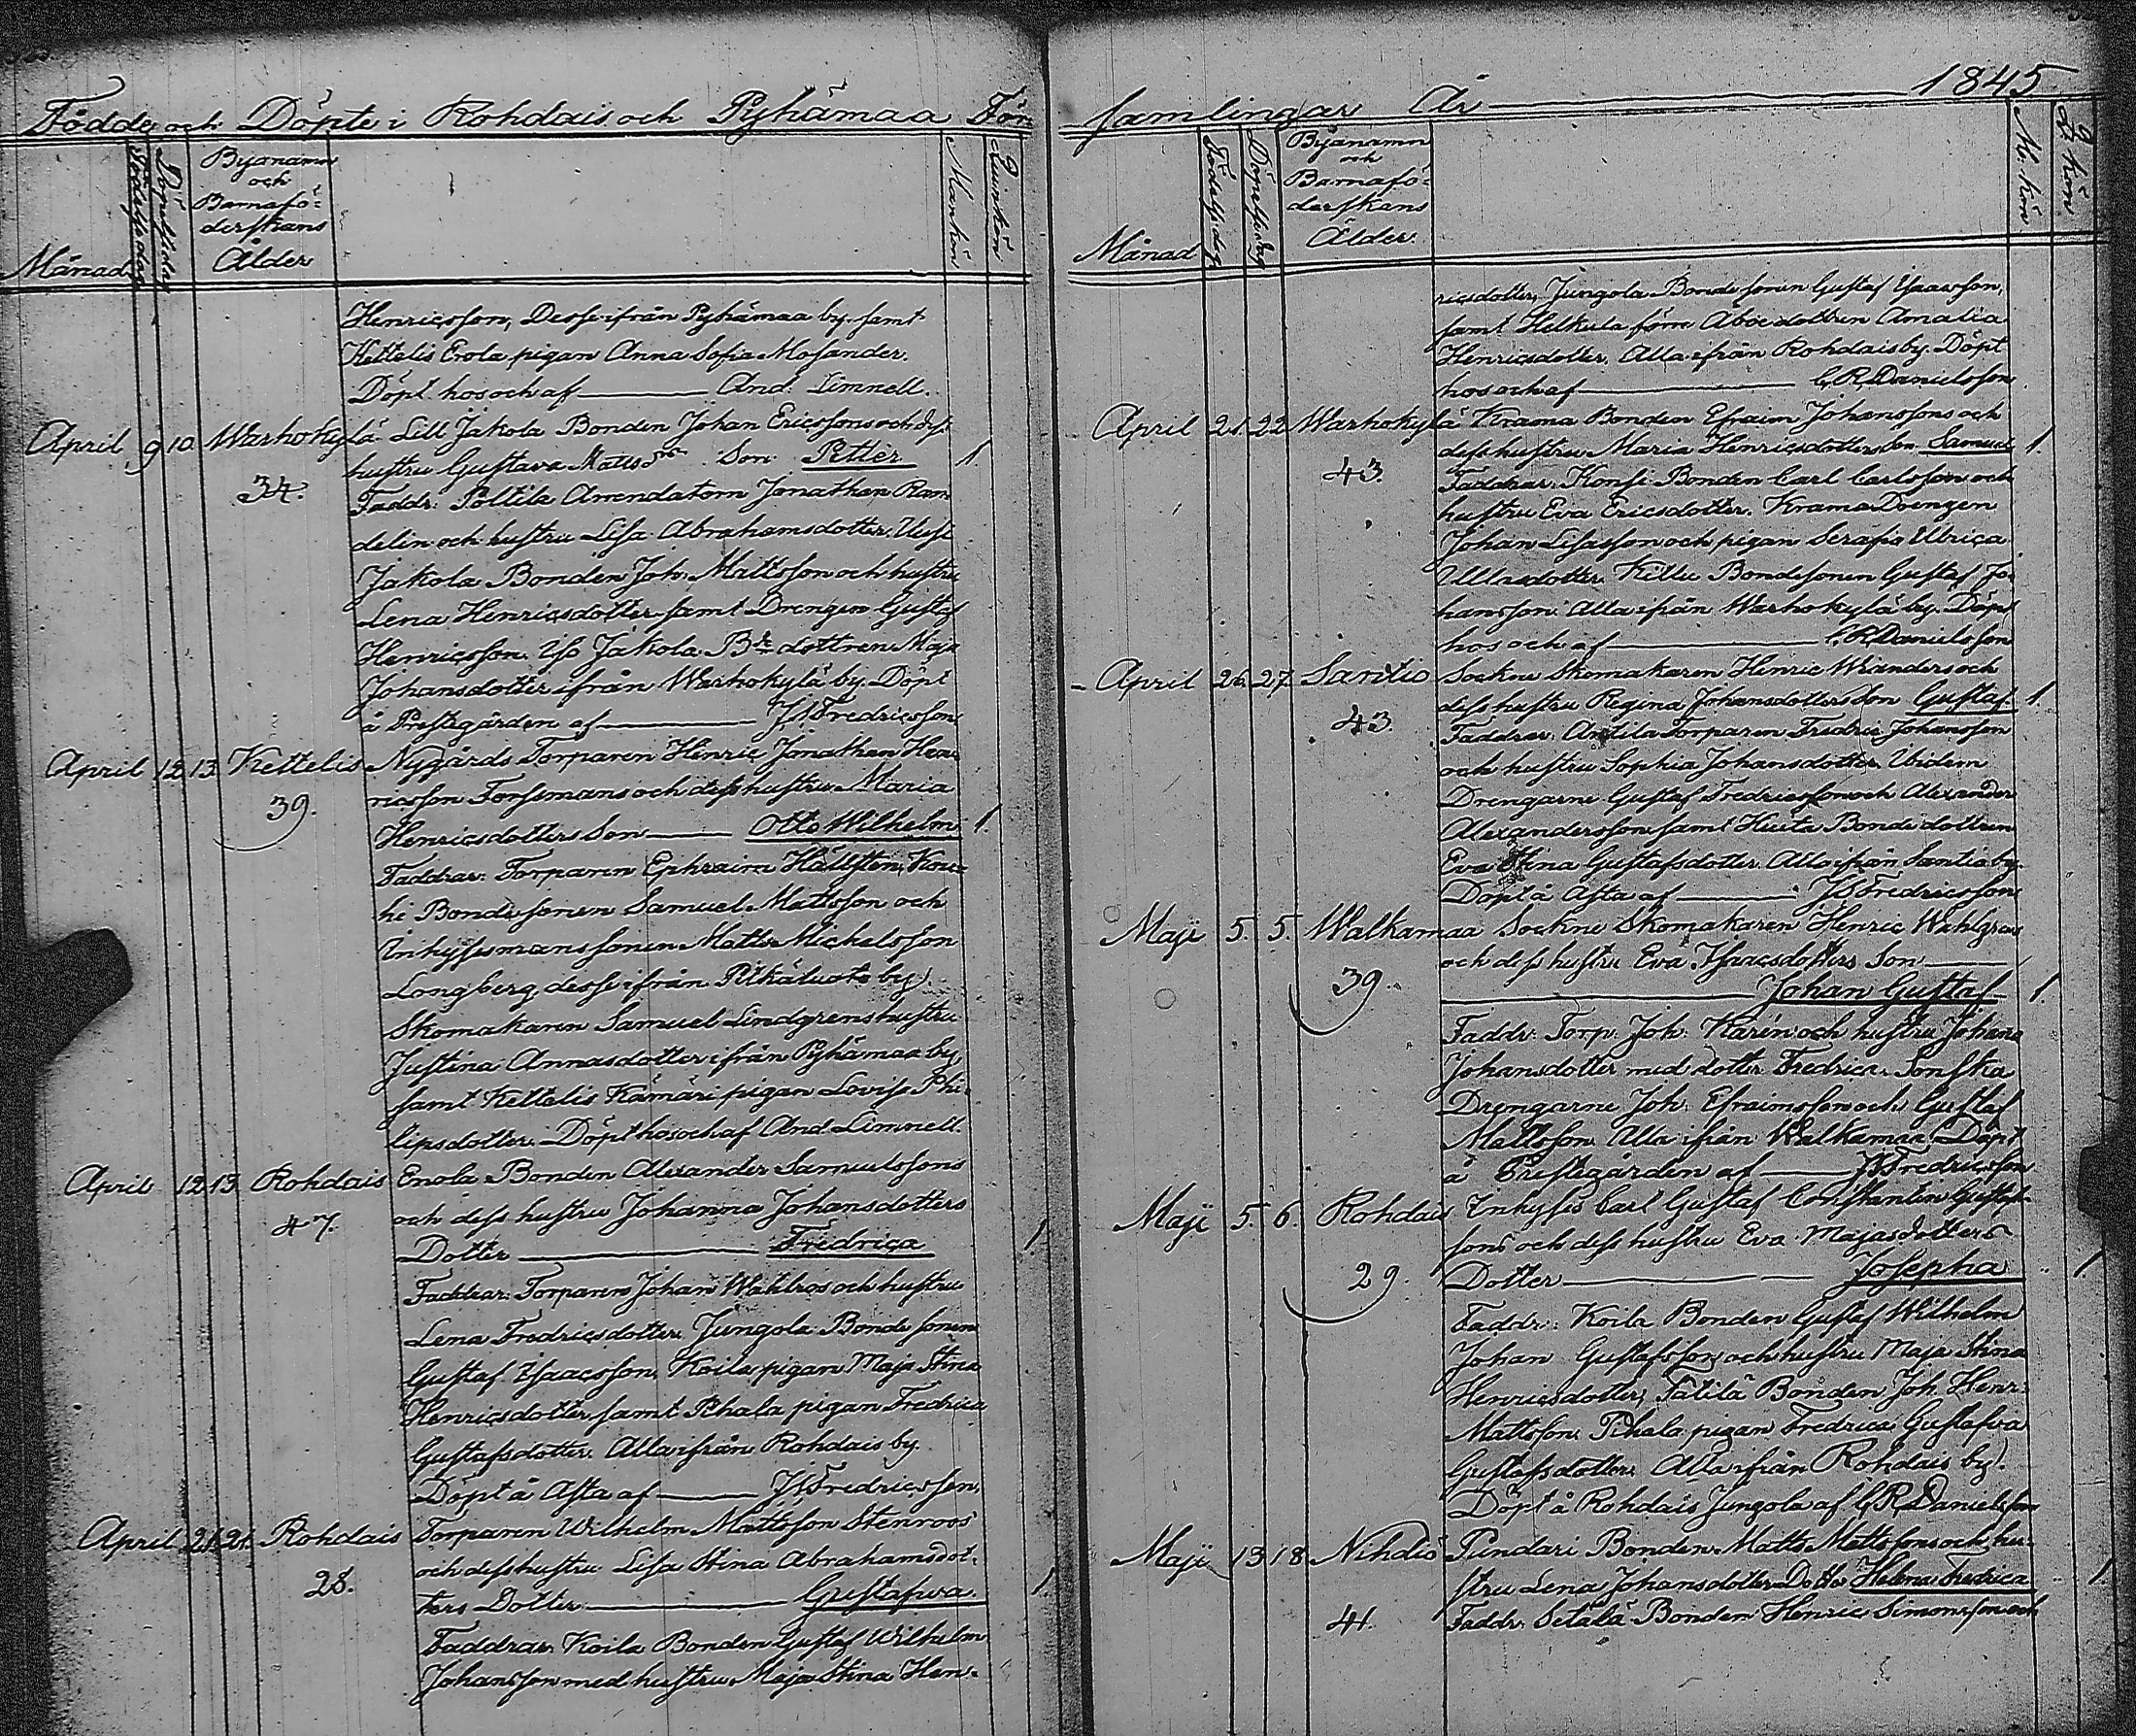 Födde och Döpte i Rohdais och Pyhämaa För
Månad
Födelsedag
Döpelsedag
Byanamn
och
Barnafö-
derskans
Ålder
Mankön
Qvinkön
Henricsson, Desse ifrån Pyhämaa by. samt
Kettelis Erola pigan Anna Sofia Mosander.
Döpt hos och af And. Limnell.
April 9 10. Warhokylä Lill Jakola Bonden Johan Ericssons och dess
hustru Gustava Matts dr Son Petter 1.
34.
Faddr: Polttila Arrendatorn Jonathan Ram
delin och hustru Lisa Abrahamsdotter. Uusi
Jakola Bonden Joh. Mattsson och hustru
Lena Henricsdotter samt Drengen Gustaf
Henricsson Iso Jakola Bde dottren Maja
Johansdotter ifrån Warhokylä by. Döpt
å Prestgården af Fredricsson
April 12 13 Kettelis Nygårds Torparen Henric Jonathan Hen-
ricsson Forssmans och dess hustru Maria
39.
Henricsdotters Son Otto Wilhelm 1.
Faddrar: Torparen Ephraim Hällsten,
hi Bondesonen Samuel Mattsson och
Inhyssmanssonen Matts Michelsson
Longberg, desse ifrån Pitkäluoto by.
Skomakaren Samuel Lindgrens hustru
Justina Annasdotter ifrån Pyhämaa by,
samt Kettelis Kämäri pigan Lovisa Phi-
lipsdotter. Döpt hos och af And. Limnell.
April 12 13 Rohdais Erola Bonden Alexander Samuelssons
och dess hustru Johanna Johansdotters
47.
Dotter Fredrica 1.
Faddrar: Torparen Johan Wahlroos och hustru
Lena Fredricsdotter, Jungola Bonde sonen
Gustaf Isaacsson, Koila pigan Maja Stina
Henricsdotter samt Pihala pigan Fredrica
Gustafsdotter. Alla ifrån Rohdais by.
Döpt å Asta af Fredricsson
April 21 21 Rohdais Torparen Wilhelm Mattsson Stenroos
och dess hustru Lisa Stina Abrahamsdot-
28.
ters Dotter Gustafwa 1.
Faddrar. Koila Bonden Gustaf Wilhelm
Johansson med hustru Maja Stina Hen-
samlingar År 1845
Månad
Födelsedag
Döpelsedag
Byanamn
och
Barnafö-
derskans
Ålder.
M. kön
Q. kön
ricsdotter, Jungola Bonde sonen Gustaf Isaacsson,
samt Helkula förre Åboe dottren Amalia
Henricsdotter. Alla ifrån Rohdais by. Döpt
hos och af C. R. Danielsson
April 21. 22 Warhokylä Krama Bonden Efraim Johanssons och
dess hustru Maria Henricsdotters Son Samuel 1.
43.
Faddrar. Konsi Bonden Carl Carlsson och
hustru Eva Ericsdotter. Krama Drengen
Johan Lisasson och pigan Serafia Ulrica
Ullasdotter. Kittu Bondesonen Gustaf Jo-
hansson. Alla ifrån Warhokylä by. Döpt
hos och af C. R. Danielsson
April 26. 27. Santio Sockne Skomakaren Henric Wrianders och
dess hustru Regina Johansdotters Son Gustaf. 1.
43.
Faddrar. Anttila Torparen Fredric Johansson
och hustru Sophia Johansdotter. Ibidem
Drengarne Gustaf Fredricsson och Alexander
Alexandersson samt Huita Bonde dottren
Eva Stina Gustafsdotter. Alla ifrån Santio by.
Döpt å Asta af Fredricsson
Maji 5. 5. Walkamaa Sockne Skomakaren Henric Wahlgrens
och dess hustru Eva Isaacsdotters Son
39.
Johan Gustaf 1.
Faddr: Torp. Joh. Karén och hustru Johana
Johansdotter med dotter Fredrica. Sonska
Drengarne Joh. Efraimsson och Gustaf
Mattsson. Alla ifrån Walkamaa. Döpt
å Prestegården af Fredricsson
Maji 5. 6. Rohdais Inhyses Carl Gustaf Constantin Gustafs-
sons och dess hustru Eva Majasdotters
29.
Dotter Josepha 1.
Faddr: Koila Bonden Gustaf Wilhelm
Johan Gustafsson och hustru Maja Stina
Henricsdotter, Tätilä Bonden Joh. Henr:
Mattsson. Pihala pigan Fredrica Gustafva
Gustafsdotter. Alla ifrån Rohdais by.
Döpt å Rohdais Jungola af C. R. Danielsson
Maji 13 18 Nihdiö Pundari Bonden Matts Mattssons och hu-
stru Lena Johansdotters Dotter Helena Fredrica 1.
41.
Faddr: Setälä Bonden Henric Simonsson och